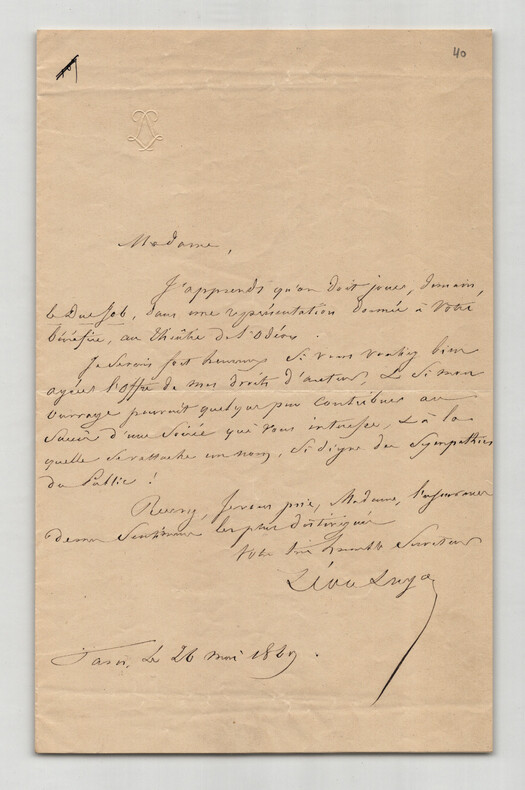 40
Madame,
J'apprends qu'on doit jouer, demain,
le Duc Job, dans une représentation donnée à Votre
bénéfice, au théâtre de l'Odéon.
Je serais fort heureux si vous vouliez bien
agréer l'offre de mes droits d'auteur, & si mon
ouvrage pouvait quelque peu contribuer au
succès d'une soirée qui vous intéresse, & à la
quelle se rattache un nom, si digne des sympathies
du Public !
Recevez, je vous prie, Madame, l'assurance
de mes sentiments les plus distingués
Votre très humble Serviteur
Léon Laya
Paris, Le 26 mai 1869.